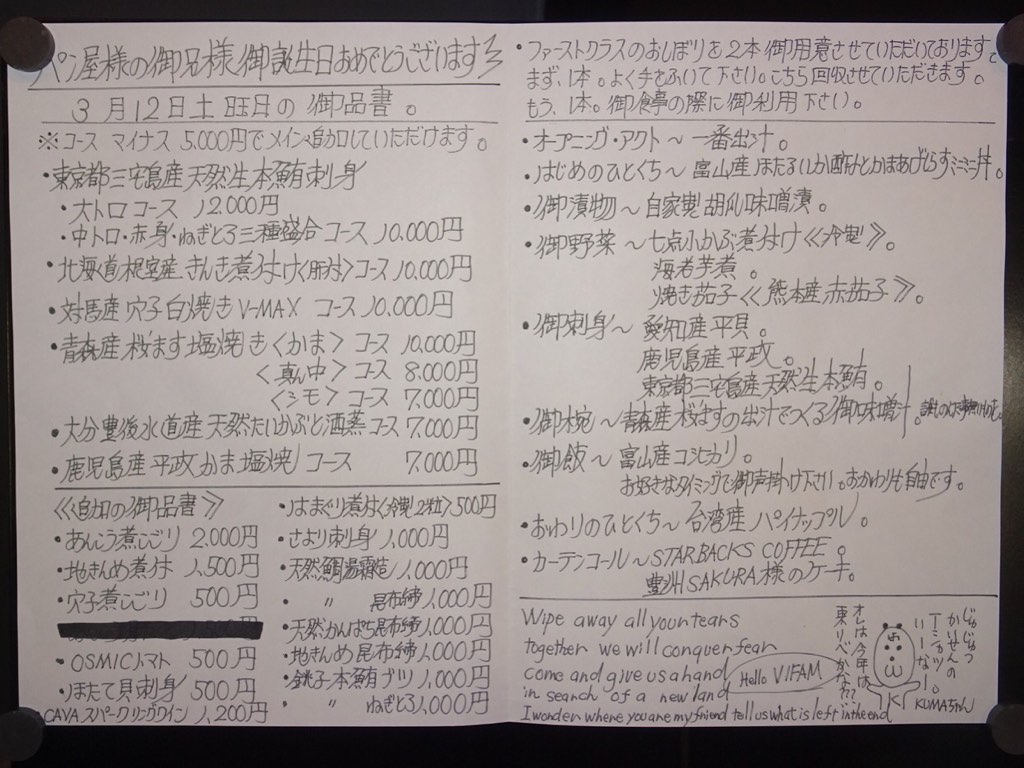 パン屋様の御兄様、御誕生日おめでとうございます
3月12日土曜日の御品書。
※コース マイナス 5.000円でメイン追加していただけます。
・東京都三宅島産天然生本鮪刺身
・大トロ コース 12.000円
・中トロ・赤身・ねぎとろ三種盛合 コース 10.000円
・北海道根室産きんき煮付け<肝付>コース 10.000円
・対馬産 穴子 白焼き V-MAX コース 10.000円
・青森産桜ます塩焼き<かま> コース 10.000円
<真ん中> コース 8.000円
<シモ> コース 7.000円
・大分豊後水道産 天然たいかぶと酒蒸 コース 7.000円
・鹿児島産平政かま塩焼 コース 7.000円
≪追加の御品書≫
・あんこう煮こごり 2.000円
・地きんめ煮付 1.500円
・穴子煮こごり 500円
・OSMICトマト 500円
・ほたて貝刺身 500円
CAVA スパークリングワイン 1.200円
・はまぐり煮付<冷製2粒>500円
・さより刺身 1.000円
・天然鯛湯霜造 1.000円
・〃 昆布締 1.000円
・天然かんぱち昆布締 1.000円
・地きんめ昆布締 1.000円
・銚子本鮪ブツ 1.000円
・〃 ねぎとろ 1.000円
・ファーストクラスのおしぼりを2本御用意させていただいております。
まず、1本。よく手をふいて下さい。こちら回収させていただきます。
もう、1本。御食事の際に御利用下さい。
・オープニング・アクト～一番出汁。
・はじめのひとくち～富山産ほたるいか酢みそとかまあげしらすミニミニ丼。
・御漬物～自家製胡瓜味噌漬。
・御野菜～七点小かぶ煮付け≪冷製≫。
海老芋煮。
焼き茄子≪熊本産赤茄子≫。
・御刺身～愛知産平貝。
鹿児島産平政。
東京都三宅島産天然生本鮪。
・御椀～青森産桜ますの出汁でつくる御味噌汁。
・御飯～富山産コシヒカリ。
お好きなタイミングで御声掛け下さい。おかわりも自由です。
・おわりのひとくち～台湾産パイナップル。
・カーテンコール～STARBACKS COFFEE。
豊洲SAKURA様のケーキ。
Wipe away all your tears
together we will conquer fear
come and give us a hand
in search of a new land
I wonder where you are my friend tell us what is left in the end
Hello VIFAM
オレは今年は
東リベかなぁ??
じゅじゅつ
かいせんの
Tシャツ
いーなー。
KUMAちゃん